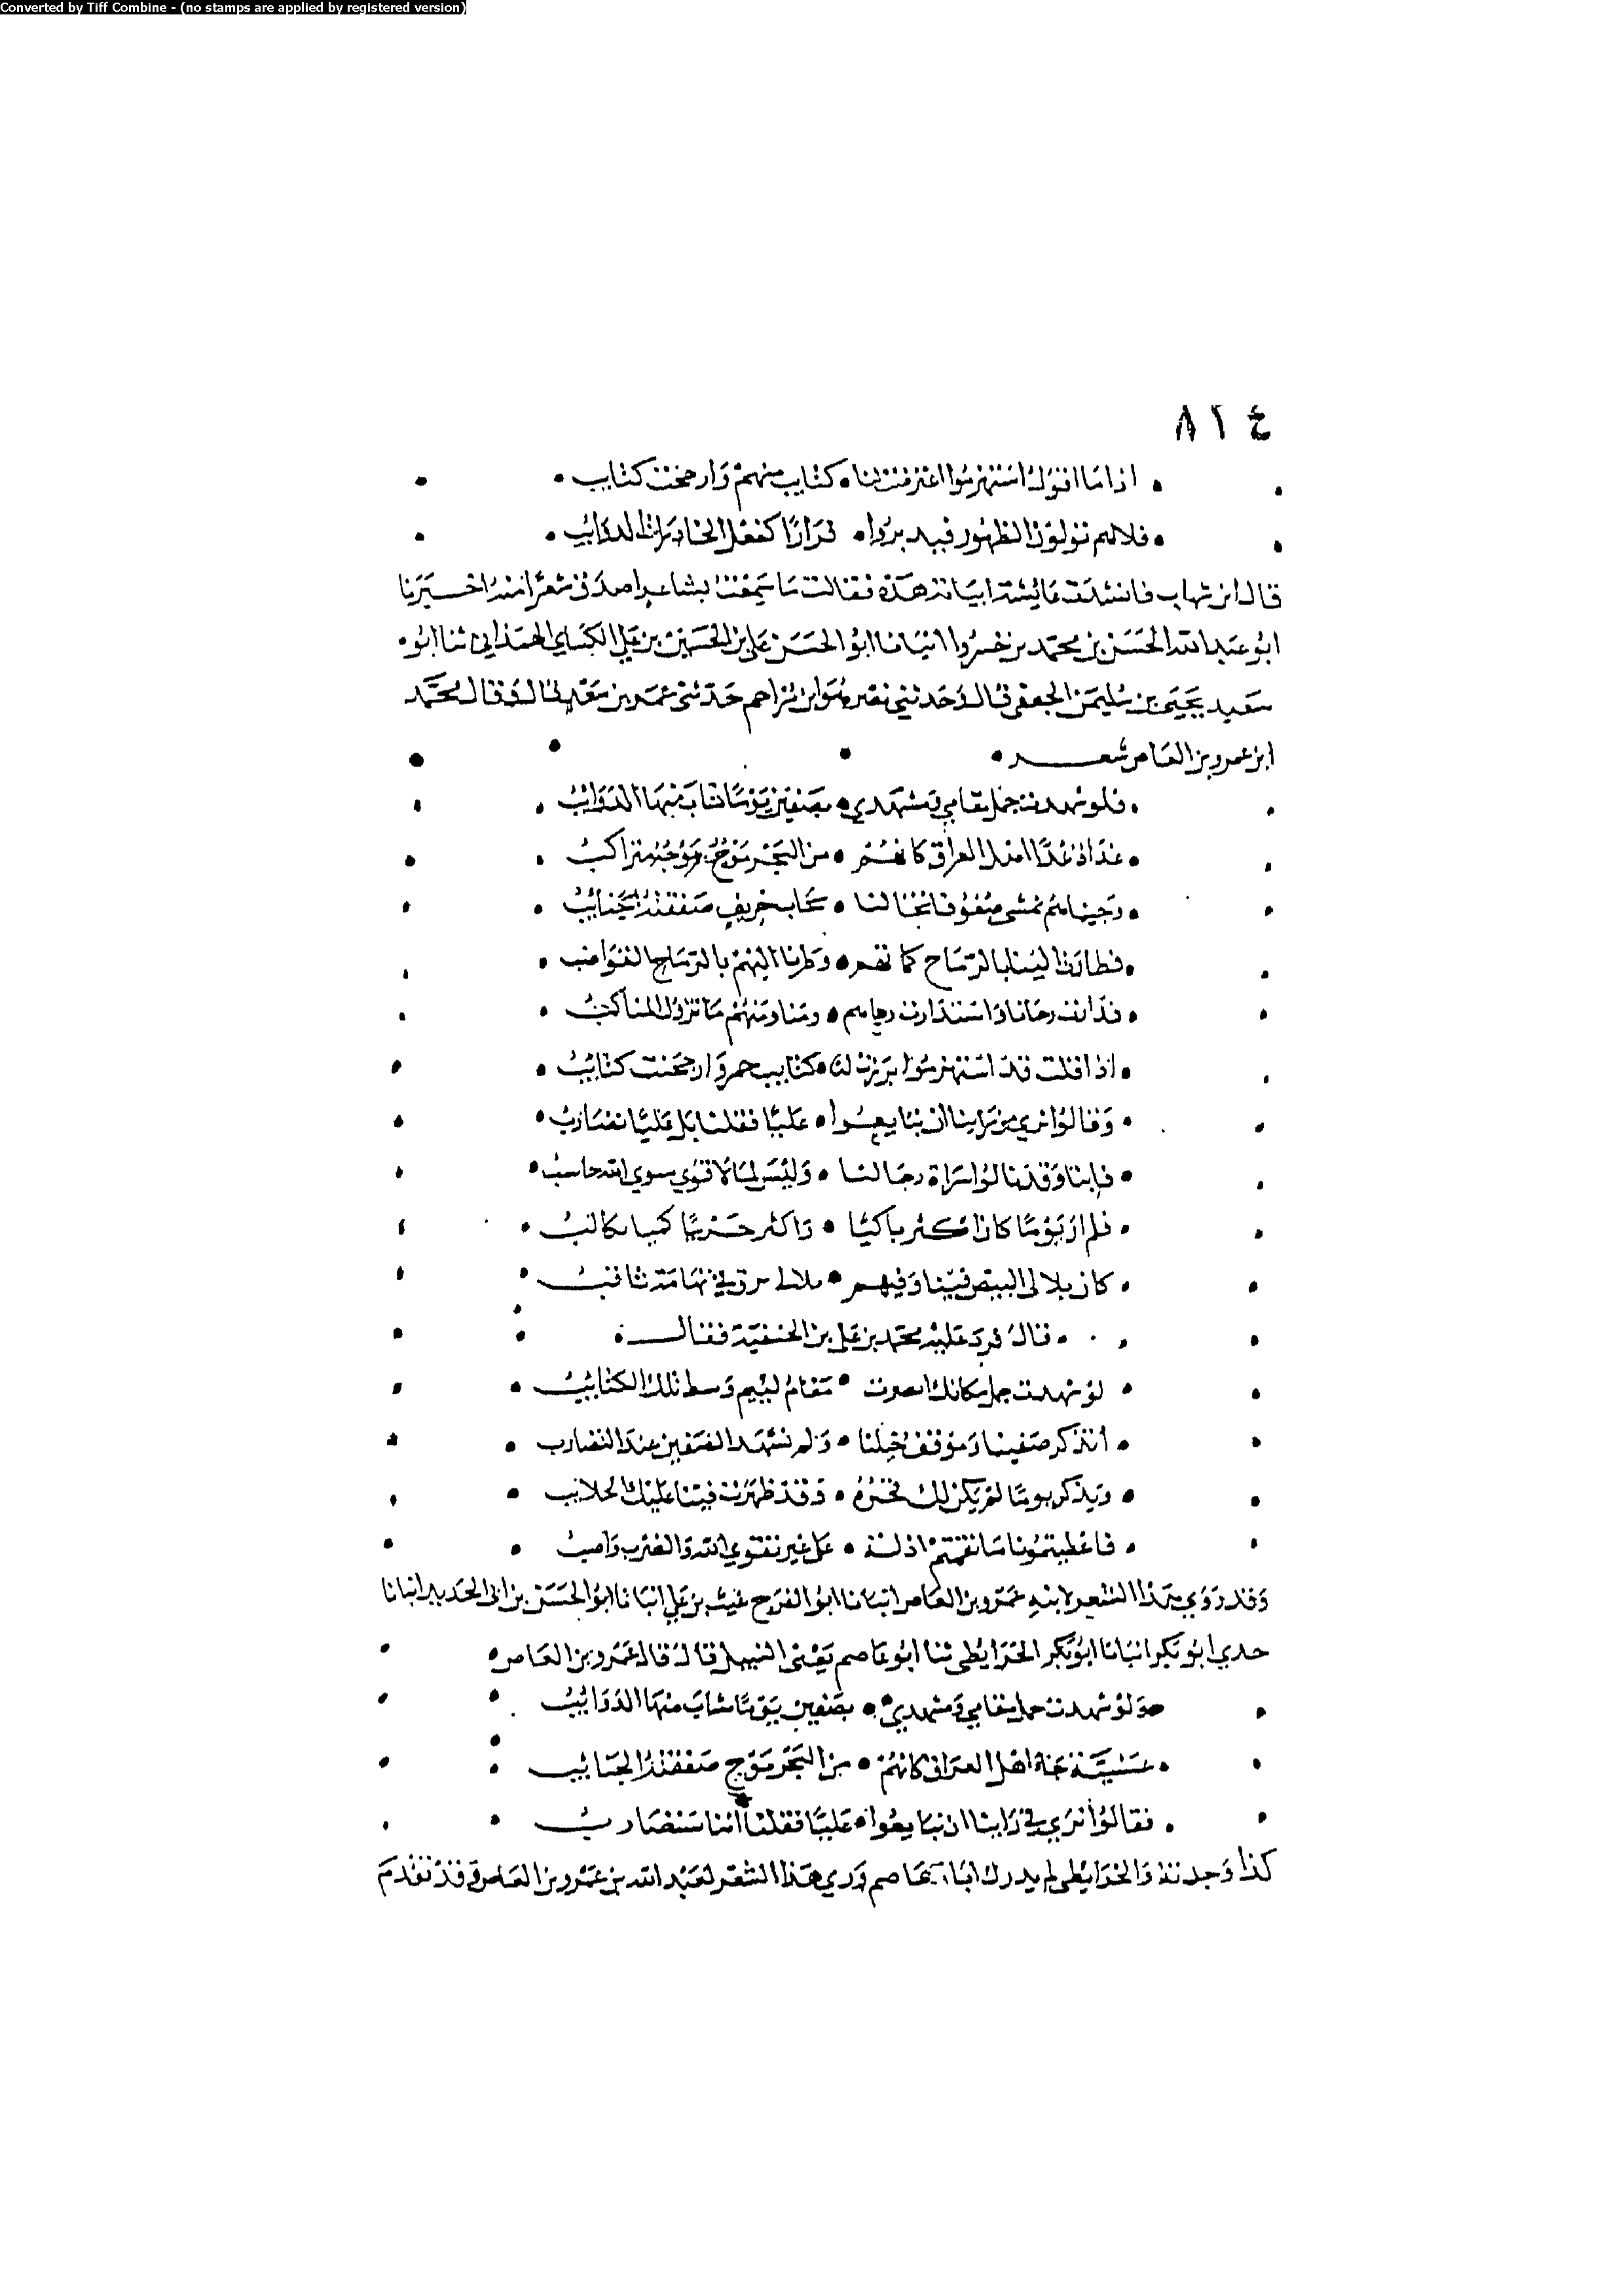 Converted by Tiff Combine - (no stamps are applied by registered version)
٨٢٤
اذا ما اقول استهزموا اعترضت لنا كتايب منهم وارجحنت كتايب
فلا هم تولون الظهور فيدبروا فرارا كفعل الخادرات الدرايب
قال ابن شهاب فانشدت عائشة ابياته هذه فقالت ما سمعت بشاعر اصدق شعرا منه اخبرنا
ابو عبد الله الحسين بن محمد بن خسروا انبانا ابو الحسن علي بن الحسين بن علي الهمذاني ثنا ابو
سعيد يحيى بن سليمن الجعفي قال وحدثني نصر هو ابن مزاحم حدثني عمر بن سعد قال وقال محمد
ابن عمرو بن العاص شعر
فلو شهدت جمل مقامي ومشهدي بصفين يوما شاب منها الذوائب
غداة غدا اهل العراق كانهم من البحر موج موجه متراكب
وجيناهم نمشي صفوفا كاننا سحاب خريف صفقته الجنائب
فطارت الينا بالرماح كماتهم وطرنا اليهم بالرماح القواضب
فدارت رحانا واستدارت رحاهم ومنا ومنهم ما تزول المناكب
اذا قلت قد استهزموا برزت لنا كتايب حمر وارجحنت كتائب
وقالوا نرى من راينا ان تبايعوا عليا فقلنا بل عليا نضارب
فابنا وقد نالوا سراة رجالنا وليس لما لاقوى سوى الله حاسب
فلم ار يوما كان اكثر باكيا واكثر حزينا كميا يكالب
كان تلالى البيض فينا وفيهم تلالؤ برق في تهامة ثاقب
قال فرد عليه محمد بن علي بن الحنفية فقال
لو شهدت جمل مكانك ابصرت مقام لييم وسط تلك الكتايب
اتذكر صفينا وموقف خيلنا ولم تشهد الصفين عند التضارب
وتذكر يوما لم يكن لك فخره وقد ظهرت فينا عليك الجلايب
فاعطيتمونا ما نقمتم اذلة على غير تقوى الله والضرب واصب
وقد روي هذا الشعر لابنه عمرو بن العاص انبانا ابو الفرج غيث بن علي انبانا ابو الحسن بن ابي الحديد انبانا
جدي ابو بكر انبانا ابو بكر الخرايطي ثنا ابو عاصم يعني النبيل قال قال عمرو بن العاص
ولو شهدت جمل مقامي ومشهدي بصفين يوما شاب منها الذوائب
عشية جا اهل العراق كانهم من البحر موج صفقته الجنايب
فقالوا نرى في راينا ان تبايعوا عليا فقلنا اننا سنضارب
كذا وجدته والخرايطي لم يدرك ابا عاصم وروي هذا الشعر لعبد الله بن عمرو بن العاص وقد تقدم